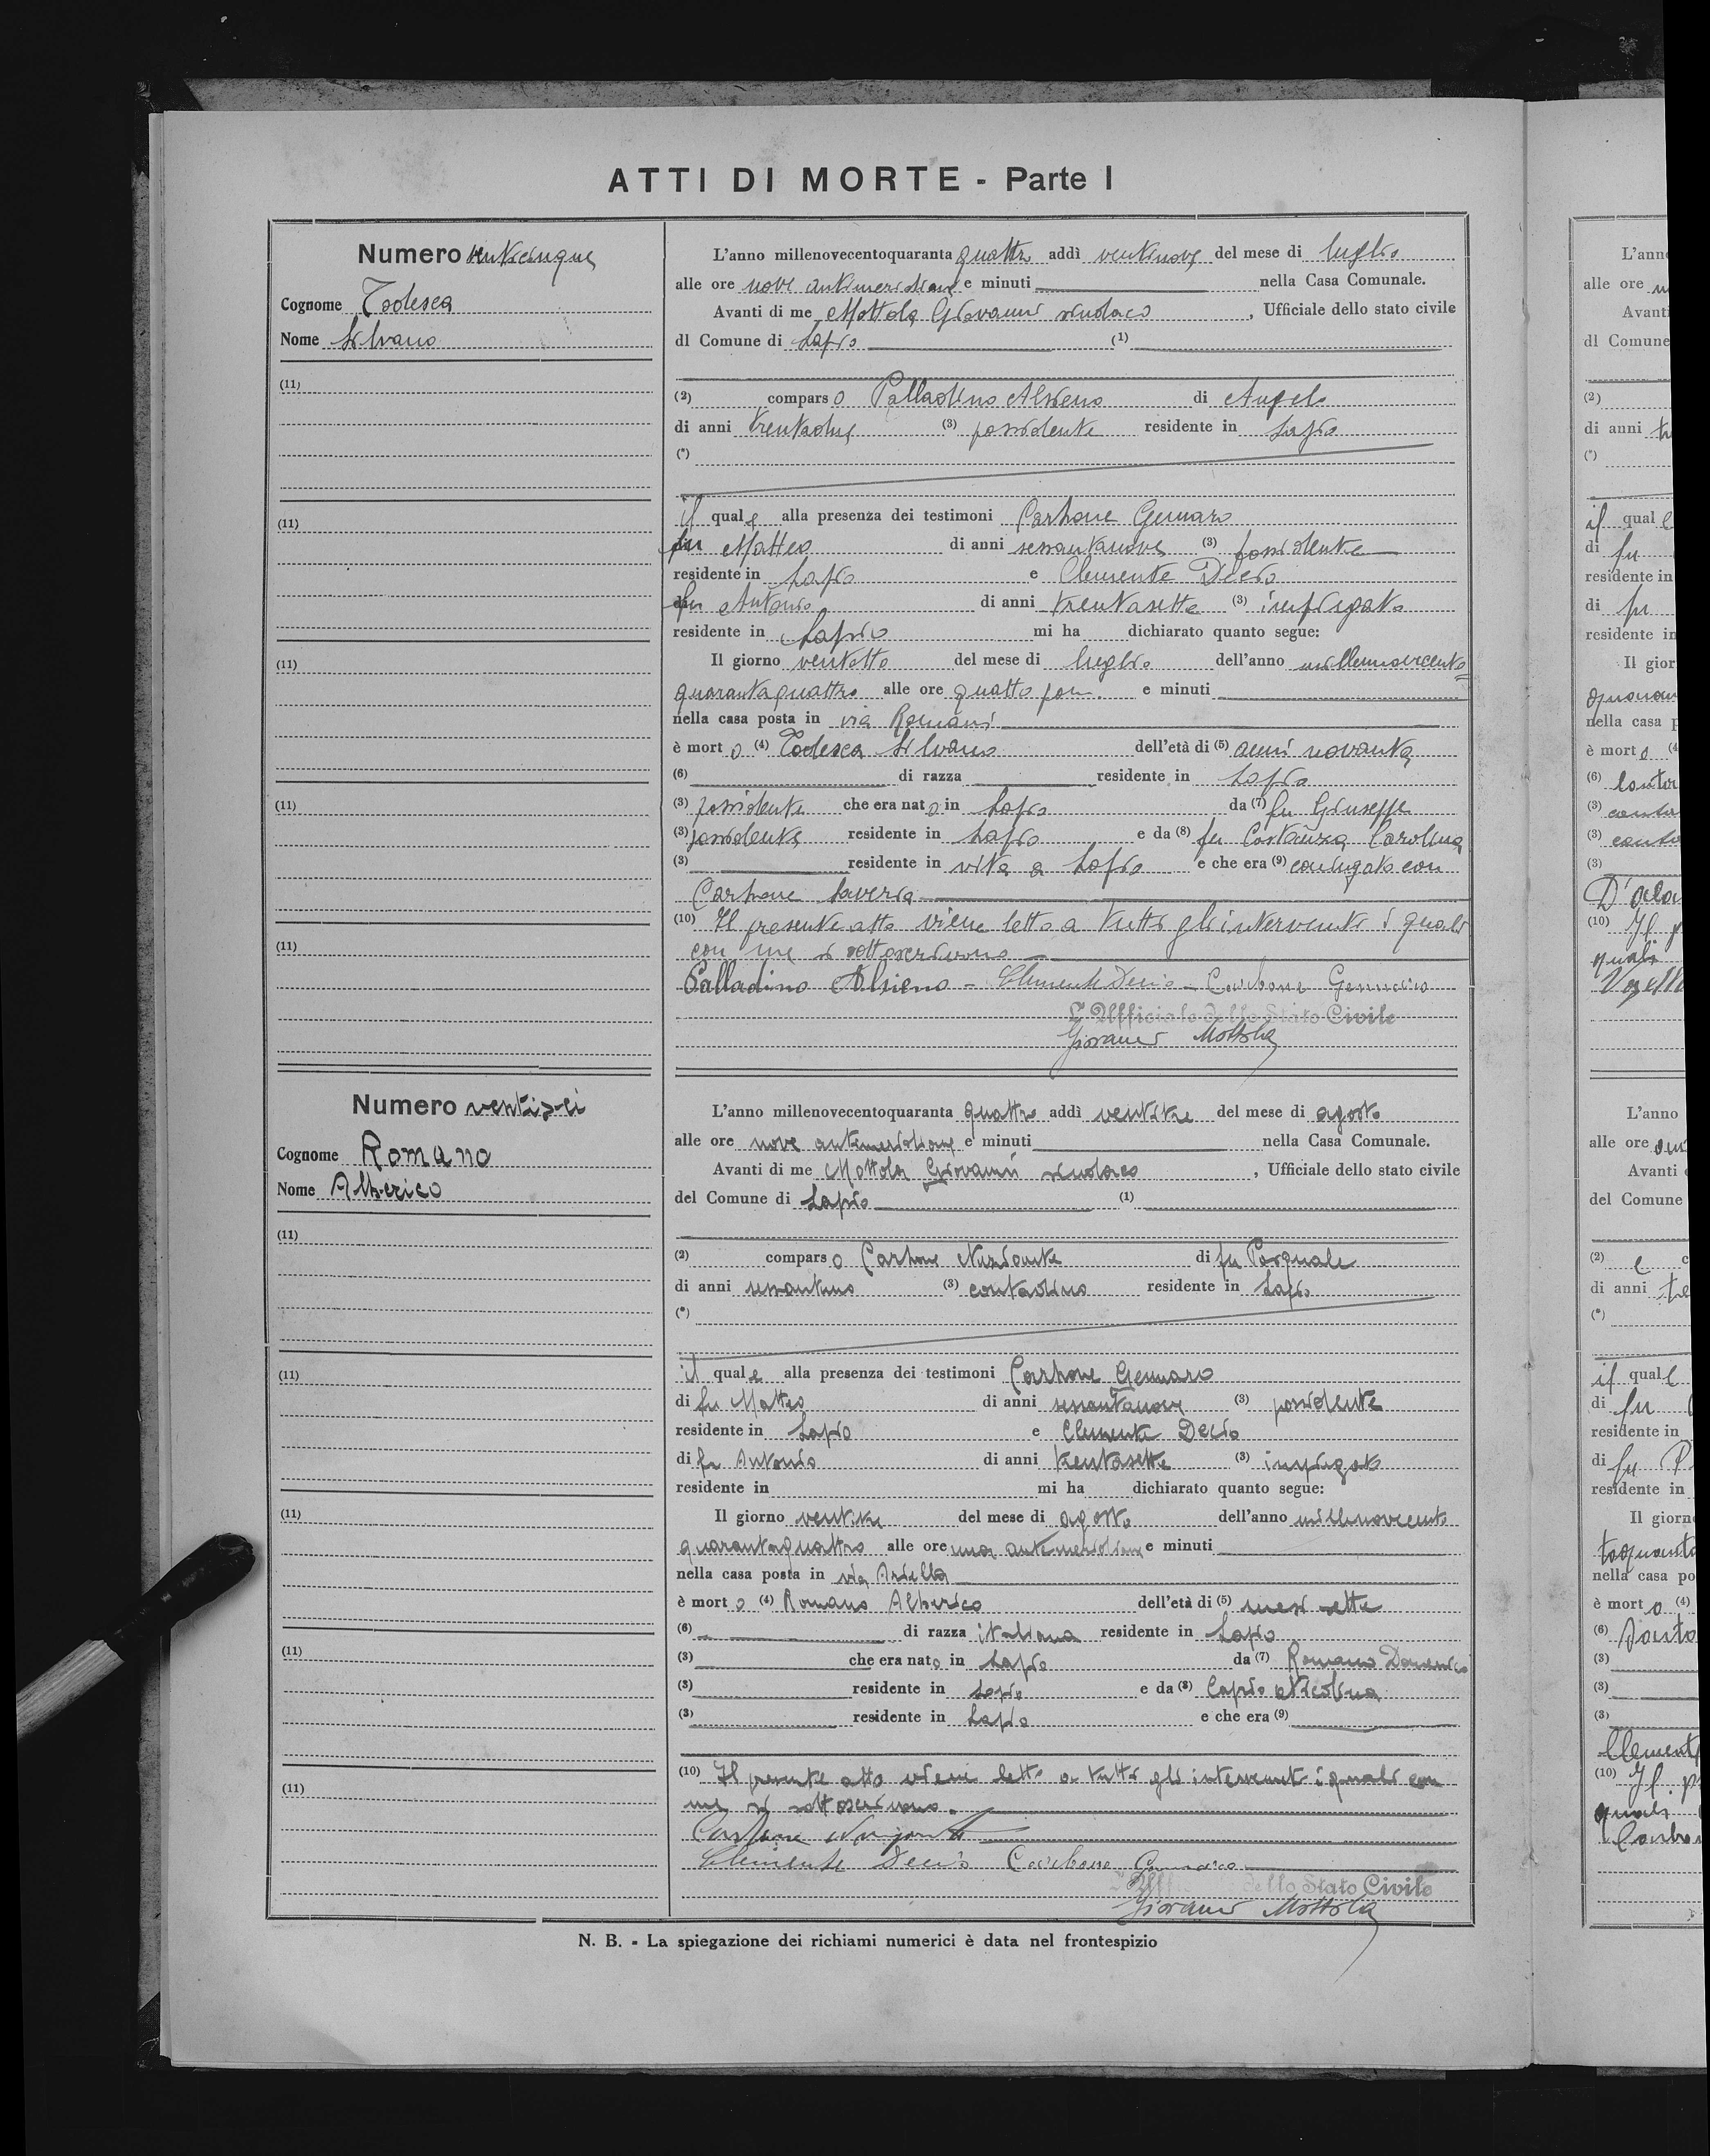 ATTI DI MORTE - Parte I
Numero venticinque
Cognome Todesca
Nome Silvano
(11)
(11)
(11)
(11)
(11)
L'anno millenovecentoquaranta quattro addì ventinove del mese di luglio
alle ore nove antimeridiane e minuti nella Casa Comunale.
Avanti di me Mottola Giovanni sindaco, Ufficiale dello stato civile
dl Comune di Lapio (1)
(2) comparso Palladino Alsieno di Angelo
di anni trentadue (3) possidente residente in Lapio
(*)
il quale alla presenza dei testimoni Carbone Gennaro
fu Matteo di anni sessantanove (3) possidente
residente in Lapio e Clemente Decio
fu Antonio di anni trentasette (3) impiegato
residente in Lapio mi ha dichiarato quanto segue:
Il giorno ventotto del mese di luglio dell'anno millenovecento
quarantaquattro alle ore quattro pom. e minuti
nella casa posta in via Romani
è morto (4) Todesca Silvano dell'età di (5) anni novanta
(6) di razza residente in Lapio
(3) possidente che era nato in Lapio da (7) fu Giuseppe
(3) possidente residente in Lapio e da (8) fu Costanza Carolina
(3) residente in vita a Lapio e che era (9) coniugato con
Carbone Saveria
(10) Il presente atto viene letto a tutti gli intervenuti i quali
con me si sottoscrivono
Palladino Alsieno - Clemente Decio - Carbone Gennaro
L'Ufficiale dello Stato Civile
Giovanni Mottola
Numero ventisei
Cognome Romano
Nome Alberico
(11)
(11)
(11)
(11)
(11)
L'anno millenovecentoquaranta quattro addì ventitre del mese di agosto
alle ore nove antimeridiane e minuti nella Casa Comunale.
Avanti di me Mottola Giovanni sindaco, Ufficiale dello stato civile
del Comune di Lapio (1)
(2) comparso Carbone Nunziante di fu Pasquale
di anni sessantuno (3) contadino residente in Lapio
(*)
il quale alla presenza dei testimoni Carbone Gennaro
di fu Matteo di anni sessantanove (3) possidente
residente in Lapio e Clemente Decio
di fu Antonio di anni trentasette (3) impiegato
residente in mi ha dichiarato quanto segue:
Il giorno ventitre del mese di agosto dell'anno millenovecento
quarantaquattro alle ore una antimeridiane e minuti
nella casa posta in via Ariella
è morto (4) Romano Alberico dell'età di (5) mesi sette
(6) di razza italiana residente in Lapio
(3) che era nato in Lapio da (7) Romano Domenico
(3) residente in Lapio e da (8) Caprio Nicolina
(3) residente in Lapio e che era (9)
(10) Il presente atto viene letto a tutti gli intervenuti i quali con
me si sottoscrivono.
Carbone Nunziante
Clemente Decio Carbone Gennaro
L'Ufficiale dello Stato Civile
Giovanni Mottola
N. B. - La spiegazione dei richiami numerici è data nel frontespizio